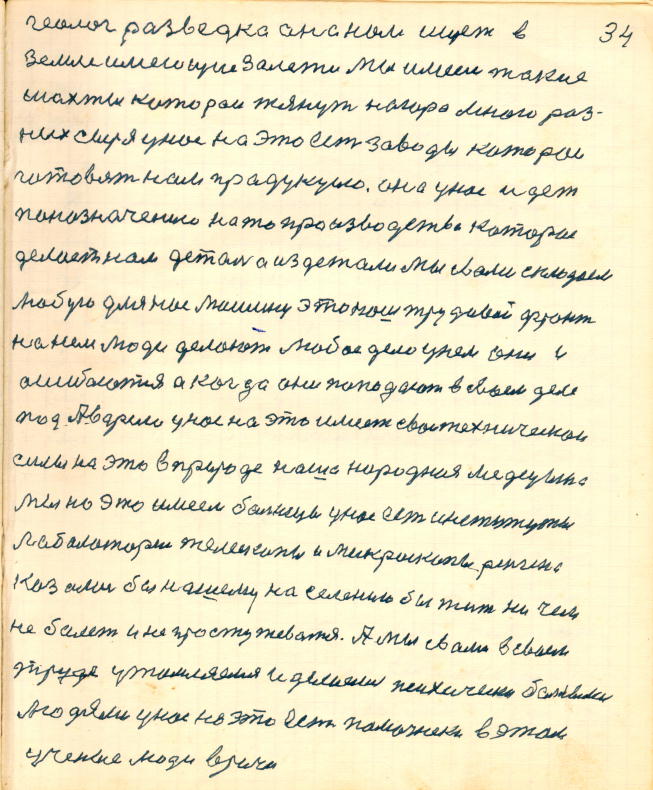 34
геолог разведка она нам ищет в
земле имеющие залежи мы имеем такие
шахты которои тянут нагора много раз-
них сыря унас на это ест заводы которои
готовят нам прадукцию. она унас идет
попозначению на то производства которое
делает нам детали а из детали мы свами складаем
любую для нас машину это наш трудавой фронт
на нем люди делают любое дело унем они и
ошибаются а когда они попадают в своем деле
под Аварею унас на это имеет свои технической
силы на это в природе наша народная медецына
мы на это имеем болницы унас ест институты
лабалатории телескопы и микроскопы ренгена
Казалас бы нашему населению бы жит ни чем
не болет и не простужеватя. А мы свами в своем
труде утомляемся и делаемся психически болными
людями унас на это Ест помочнеки в этом
ученые люди врачи